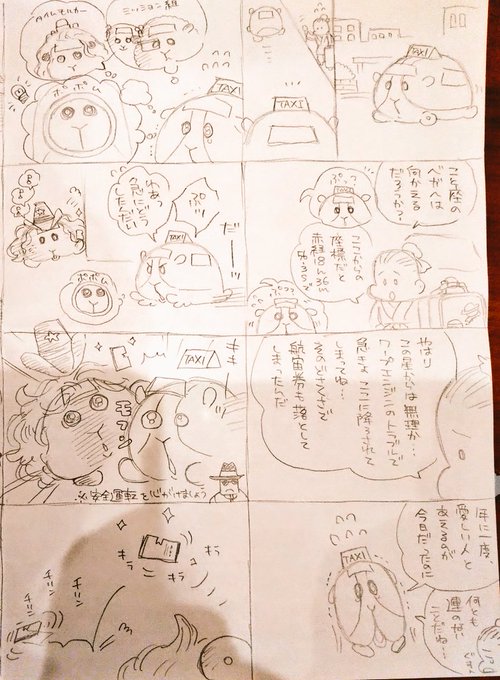 TAXI
TAXI
こと座の
ベガへは
向かえる
だろうか?
TAXI
ここからの
座標だと
赤経18h36m
56.3Sで
やはり
この星からは無理か…
ワープエンジンのトラブルで
急きょ ここに降ろされて
しまってね…
そのどさくさで
航宙券も落として
しまったんだ
年に一度
愛しい人と
あえるのが
今日だったのに
何とも
運のない
ことだね…
TAXI
ミッション組
タイムモルカー
ポポム
TAXI
だーーー
TAXI
わぁっ
急にどう
しただい
ポポム
キキ
TAXI
モフン
※安全運転を心がけましょう
キラ
キラ
チリン
チリン